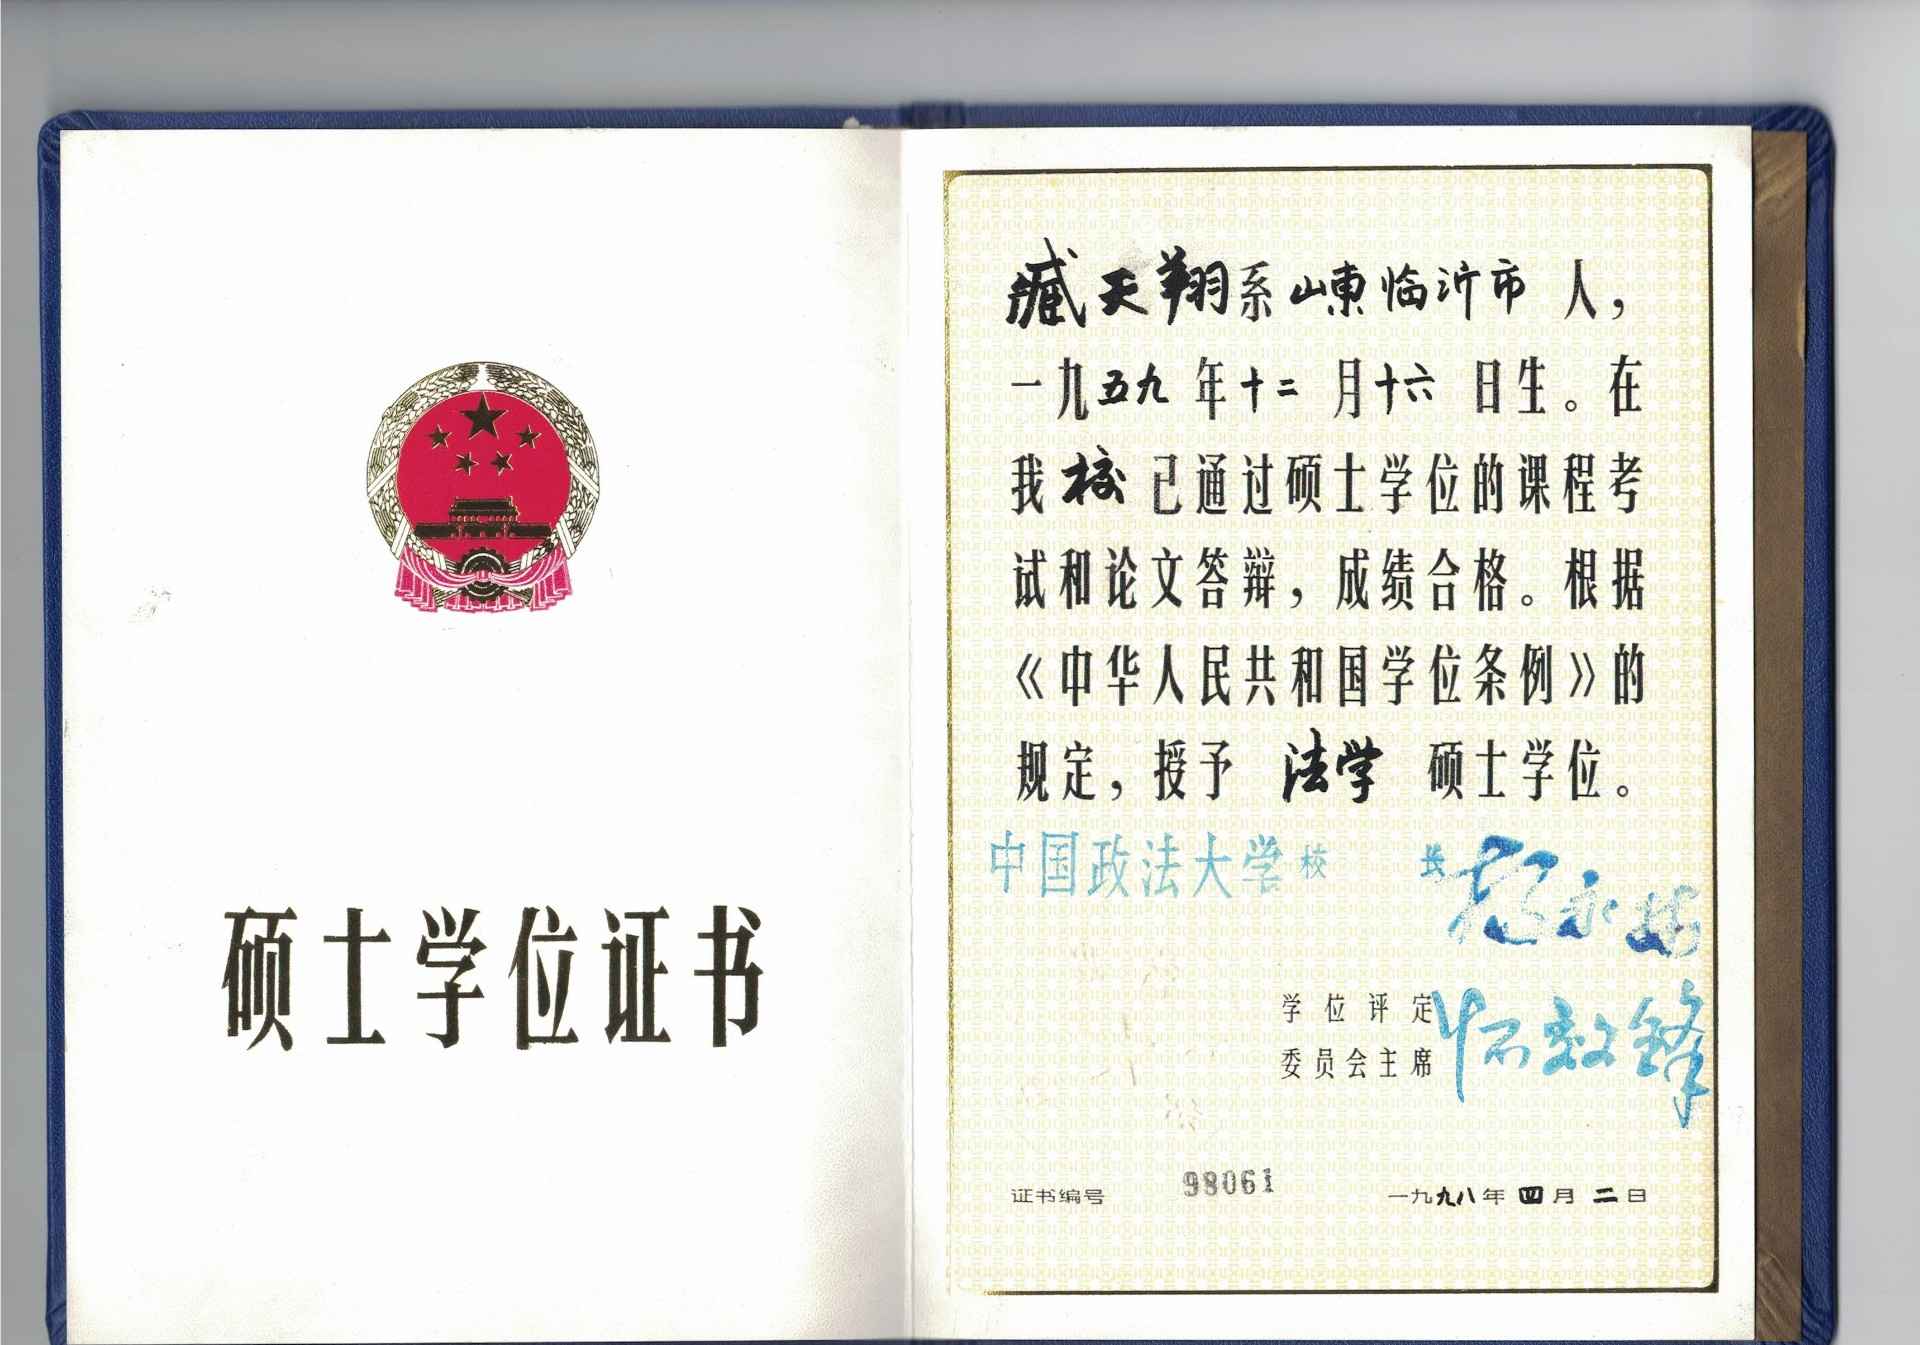 硕士学位证书
臧天翔系山東临沂市 人，
一九五九年十二月十六日生。在
我校已通过硕士学位的课程考
试和论文答辩，成绩合格。根据
《中华人民共和国学位条例》的
规定，授予 法学 硕士学位。
中国政法大学校 长 杨永林
学位评定
委员会主席 怀效锋
证书编号 98061 一九九八年四月二日